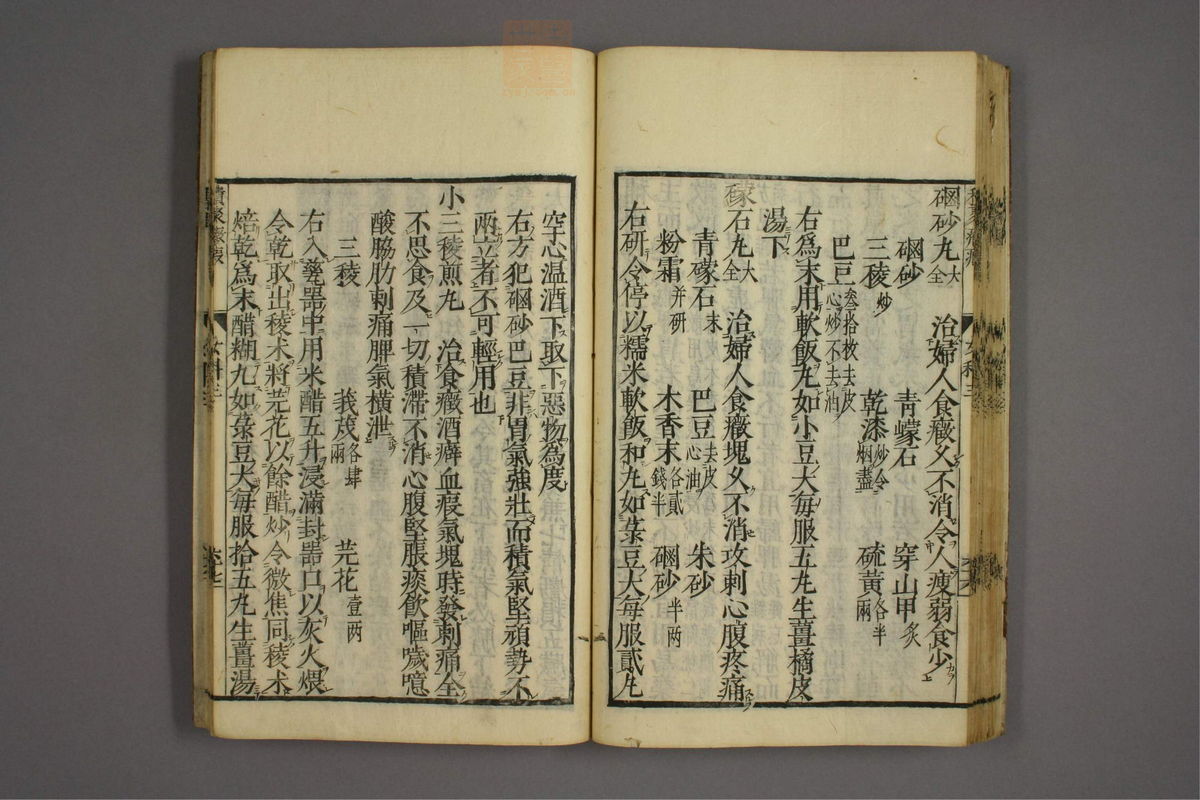 硇砂丸大全　治婦人食癥久不消令人瘦弱食少
硇砂　青礞石　穿山甲炙
三稜炒　乾漆炒令烟盡　硫黃各半兩
巴豆叁拾枚去皮心炒不去油
右爲末用軟飯丸如小豆大每服五丸生薑橘皮
湯下
礞石丸大全　治婦人食癥塊久不消攻刺心腹疼痛
青礞石末　巴豆去皮心油　朱砂
粉霜并研　木香末各貳錢半　硇砂半兩
右研令停以糯米軟飯和丸如菉豆大每服貳丸
空心温酒下取下惡物爲度
右方犯硇砂巴豆非胃氣強壯而積氣堅頑勢不
兩立者不可輕用也
小三稜煎丸　治食癥酒癖血瘕氣塊時發刺痛全
不思食及一切積滯不消心腹堅脹痰飲嘔噦噫
酸脇肋刺痛脾氣橫泄
三稜　莪茂各肆兩　芫花壹兩
右入甆器中用米醋五升浸滿封器口以灰火煨
令乾取出稜术將芫花以餘醋炒令微焦同稜术
焙乾爲末醋糊丸如菉豆大每服拾五丸生薑湯